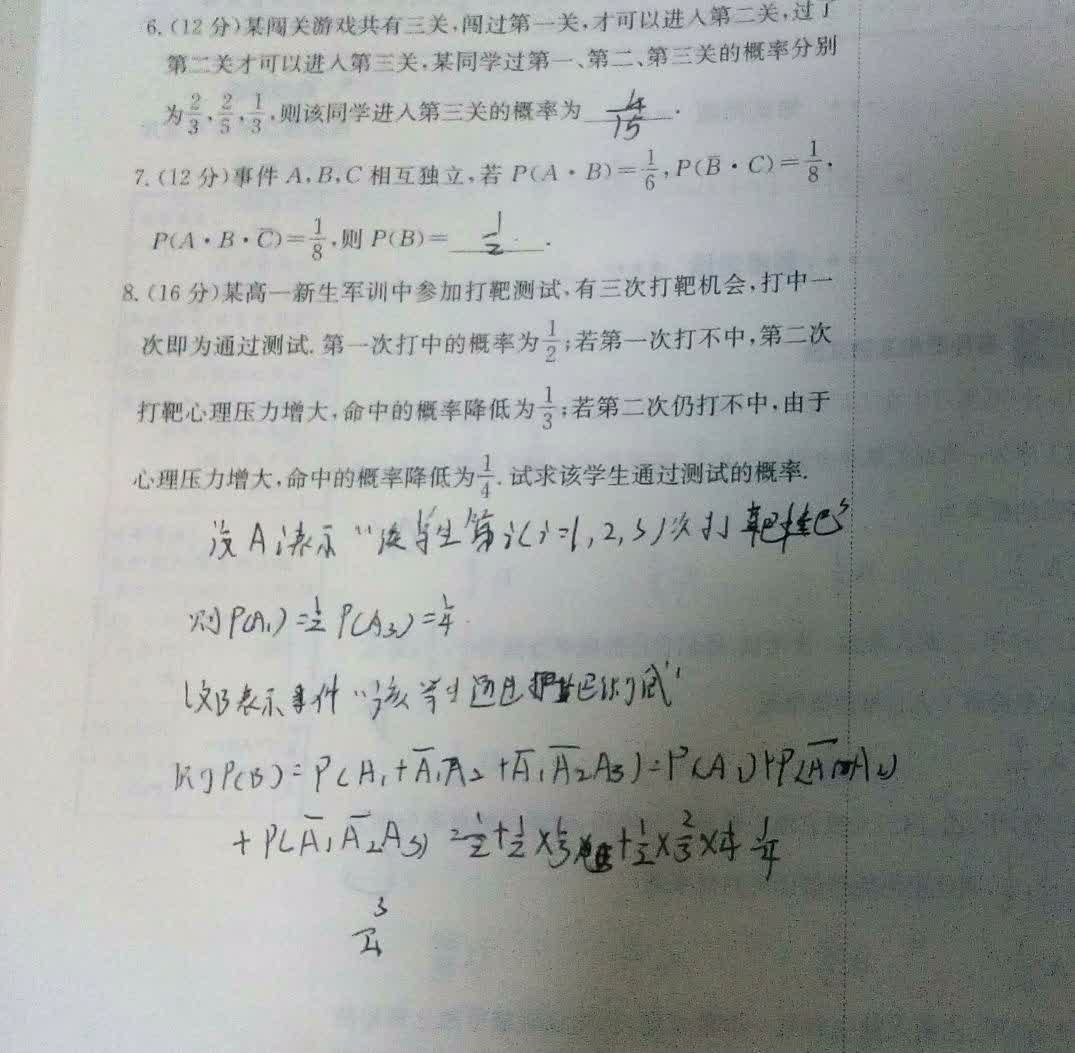 6.(12分)某闯关游戏共有三关,闯过第一关,才可以进入第二关,过了
第二关才可以进入第三关,某同学过第一、第二、第三关的概率分别
为2/3,2/5,1/3,则该同学进入第三关的概率为 4/15 .
7.(12分)事件A,B,C相互独立,若P(A·B)=1/6,P(B̄·C)=1/8,
P(A·B·C̄)=1/8,则P(B)= 1/2 .
8.(16分)某高一新生军训中参加打靶测试,有三次打靶机会,打中一
次即为通过测试.第一次打中的概率为1/2;若第一次打不中,第二次
打靶心理压力增大,命中的概率降低为1/3;若第二次仍打不中,由于
心理压力增大,命中的概率降低为1/4.试求该学生通过测试的概率.
设Ai表示“该学生第i(i=1,2,3)次打靶
则P(A1)=1/2 P(A3)=1/4.
设B表示事件“该学生通过 测试”
则P(B)=P(A1+Ā1A2+Ā1Ā2A3)=P(A1)+P(Ā1A2)
+P(Ā1Ā2A3)=1/2+1/2×1/3+1/2×2/3×1/4
3/4